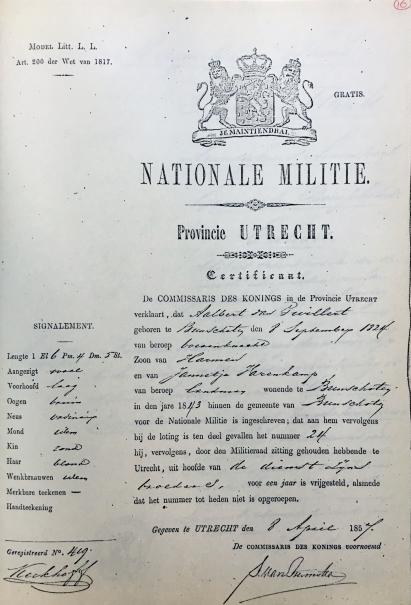 16
MODEL Litt. L. L.
Art. 200 der Wet van 1817.
GRATIS.
JE MAINTIENDRAI
NATIONALE MILITIE.
Provincie UTRECHT.
Certificaat.
De COMMISSARIS DES KONINGS in de Provincie UTRECHT
verklaart, dat Aalbert van
geboren te Bunschoten den 8 September 1824
van beroep boerenknecht
Zoon van Harmen
en van Jannetje Harenkamp
van beroep landman wonende te Bunschoten
in den jare 1843 binnen de gemeente van Bunschoten
voor de Nationale Militie is ingeschreven; dat aan hem vervolgens
bij de loting is ten deel gevallen het nummer 24
hij, vervolgens, door den Militieraad zitting gehouden hebbende te
Utrecht, uit hoofde van de dienst zijns
broeders, voor een jaar is vrijgesteld, alsmede
dat het nummer tot heden niet is opgeroepen.
Gegeven te UTRECHT den 8 April 1857.
De COMMISSARIS DES KONINGS voornoemd
SIGNALEMENT.
Lengte 1 El 6 Pm. 4 Dm. 5 St.
Aangezigt ovaal
Voorhoofd laag
Oogen bruin
Neus ordinair
Mond idem
Kin rond
Haar blond
Wenkbraauwen idem
Merkbare teekenen —
Handteekening
Geregistreerd No. 419.
Kerkhoff